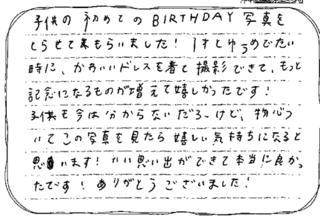 子供の初めてのBIRTHDAY写真を
とらせてもらいました! 1才というめでたい
時に、かわいいドレスを着て撮影できて、もっと
記念になるものが増えて嬉しかったです!
子供も今は分からないだろーけど、物心つ
いてこの写真を見たら嬉しい気持ちになると
思います! いい思い出ができて本当に良かっ
たです! ありがとうございました!